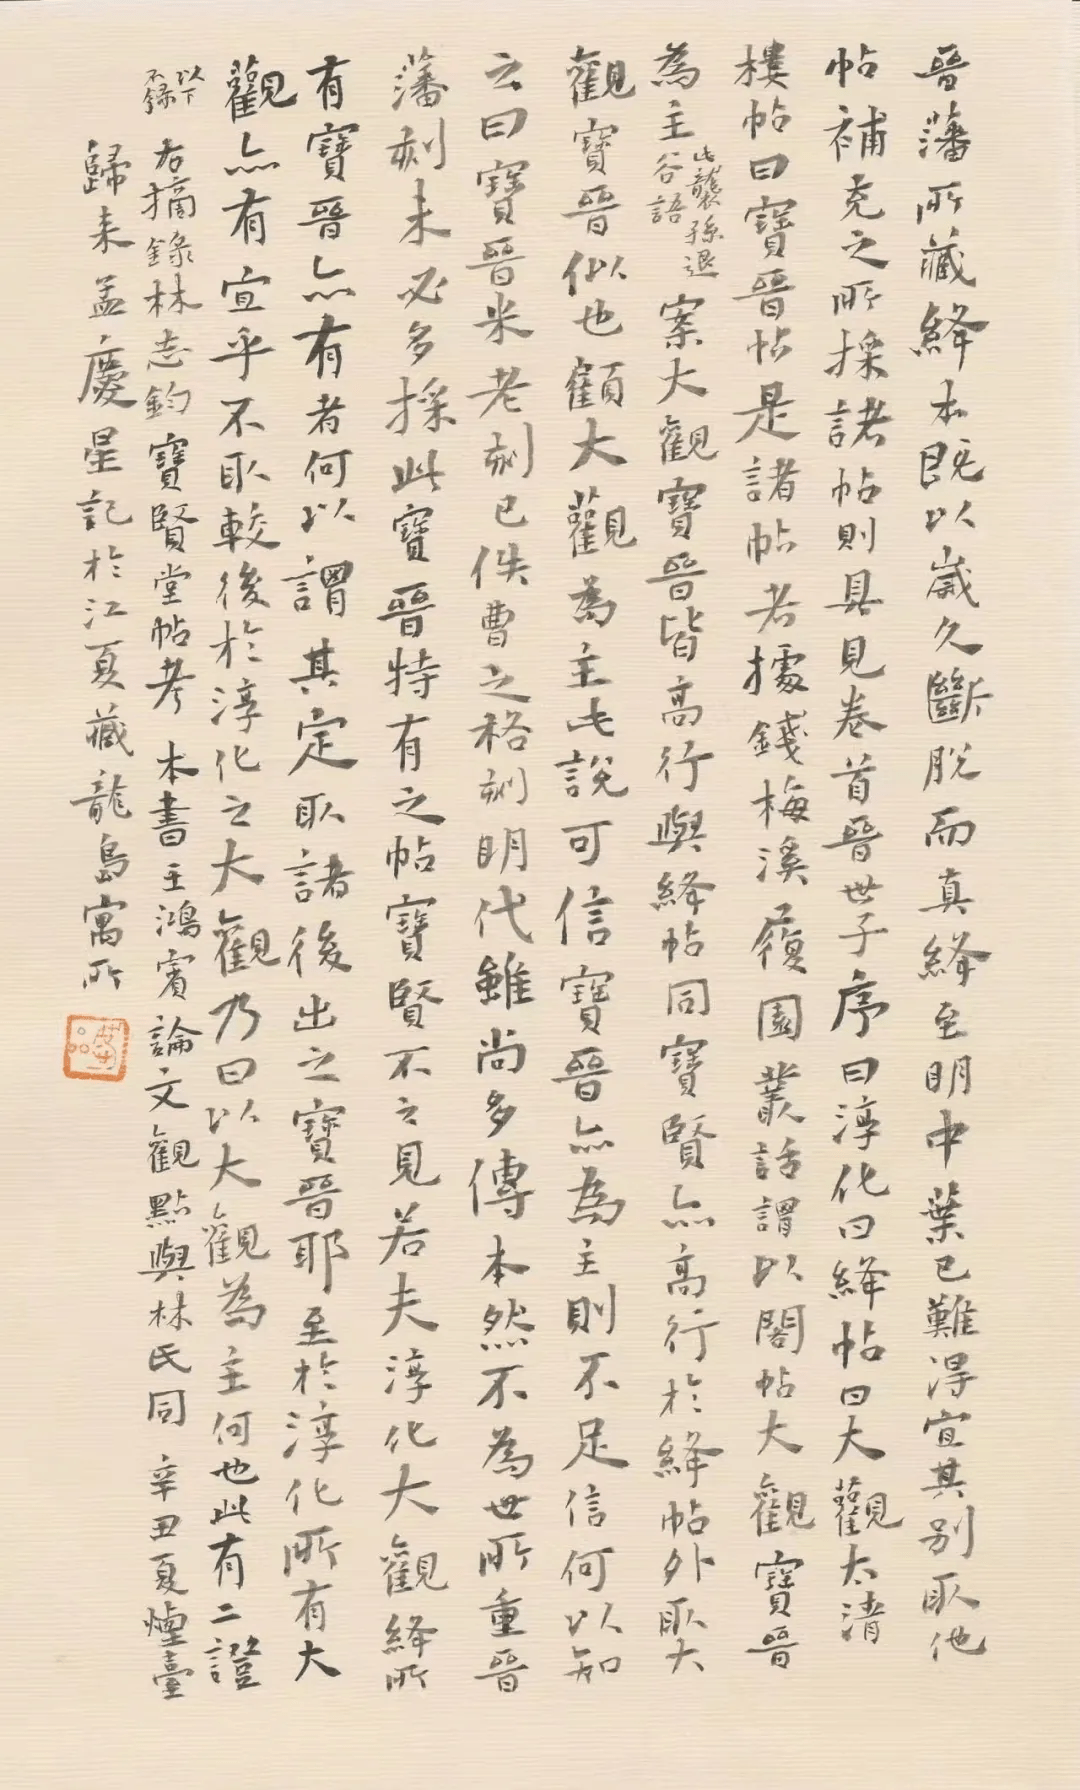 晉藩所藏絳本既以歲久斷脫而真絳至明中葉已難得宜其別取他
帖補充之所採諸帖則具見卷首晉世子序曰淳化曰絳帖曰大觀太清
樓帖曰寶晉帖是諸帖者據錢梅溪履園叢話謂以閣帖大觀寶晉
為主此襲孫退谷語案大觀寶晉皆高行與絳帖同寶賢亦高行於絳帖外取大
觀寶晉似也顧大觀為主此說可信寶晉亦為主則不足信何以知
云曰寶晉米老刻已佚曹之格刻明代雖尚多傳本然不為世所重晉
藩刻未必多採此寶晉特有之帖寶賢不之見若夫淳化大觀絳所
有寶晉亦有者何以謂其定取諸後出之寶晉耶至於淳化所有大
觀亦有宜乎不取較後於淳化之大觀乃曰以大觀為主何也此有二證
以下不錄 右摘錄林志鈞寶賢堂帖考 本書王鴻賓論文觀點與林氏同 辛丑夏煙臺
歸來孟慶星記於江夏藏龍島寓所